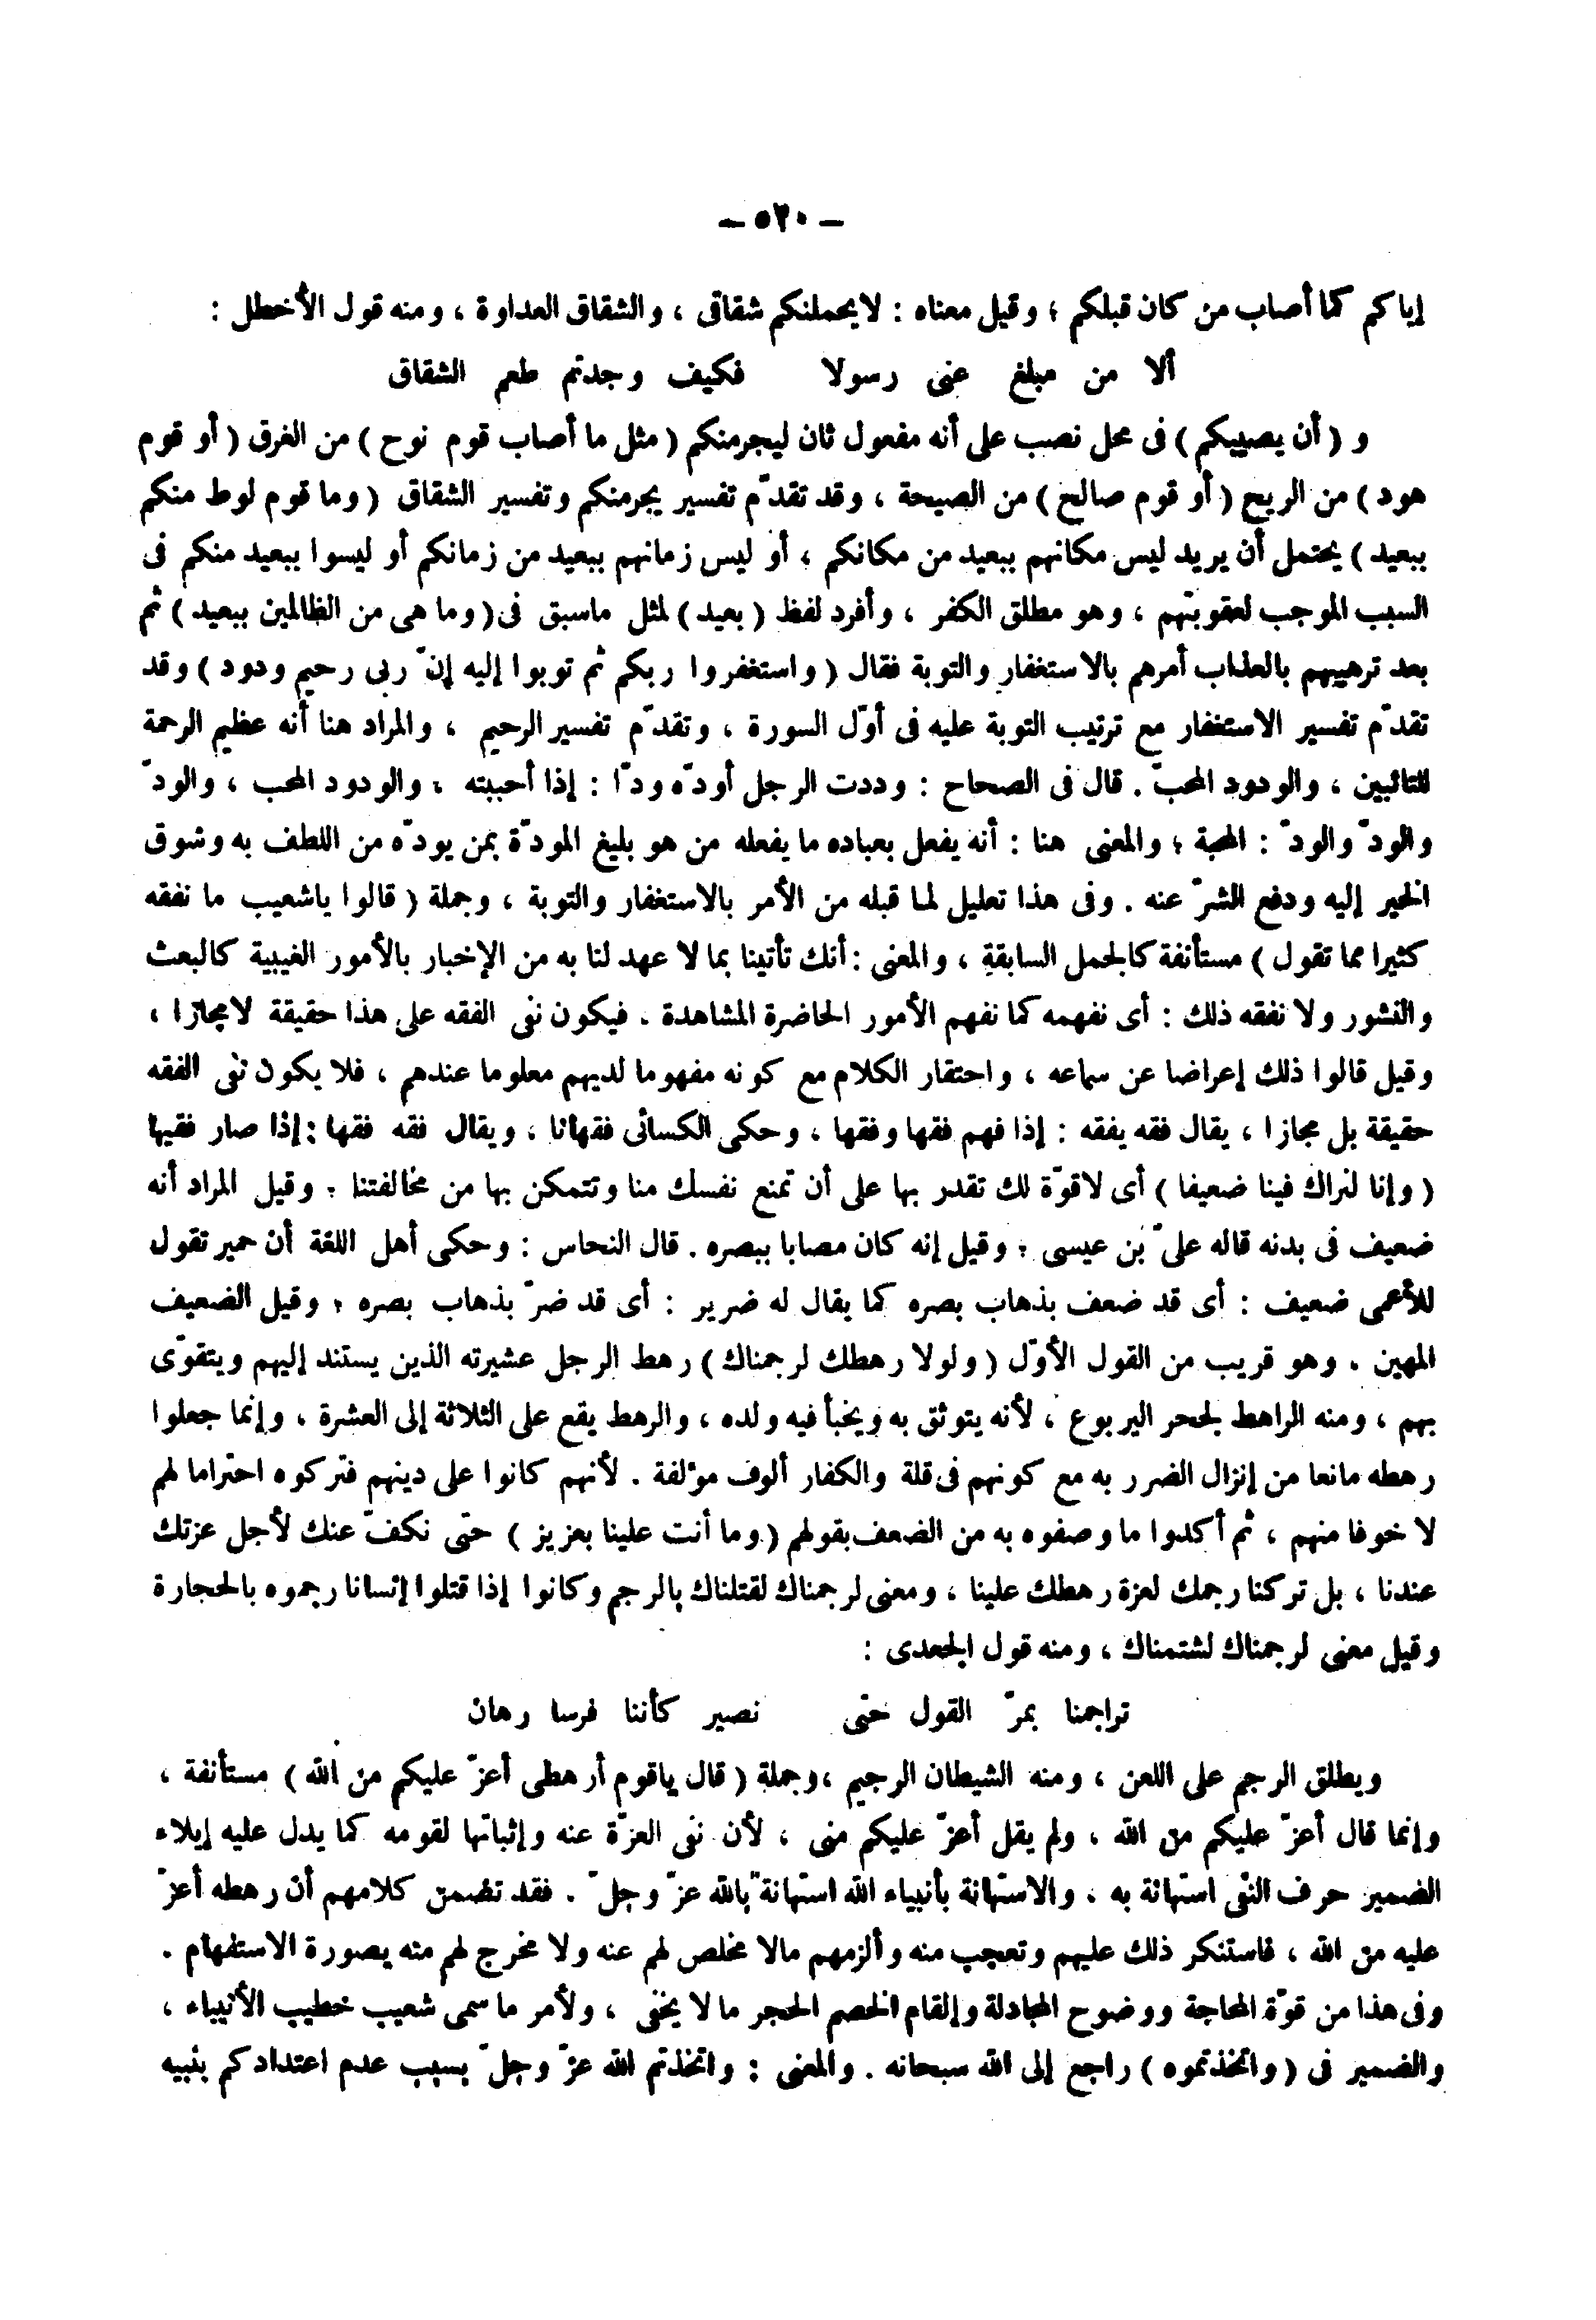 – ٥٢٠ –
إياكم كما أصاب من كان قبلكم ؛ وقيل معناه : لايحملنكم شقاقى ، والشقاق العداوة ، ومنه قول الأخطل :
ألا من مبلغ عنى رسولا فكيف وجدتم طعم الشقاق
و ( أن يصيبكم ) فى محل نصب على أنه مفعول ثان ليجرمنكم ( مثل ما أصاب قوم نوح ) من الغرق ( أو قوم
هود ) من الريح ( أو قوم صالح ) من الصيحة ، وقد تقدّم تفسير يجرمنكم وتفسير الشقاق ( وما قوم لوط منكم
ببعيد ) يحتمل أن يريد ليس مكانهم ببعيد من مكانكم ، أو ليس زمانهم ببعيد من زمانكم أو ليسوا ببعيد منكم فى
السبب الموجب لعقوبتهم ، وهو مطلق الكفر ، وأفرد لفظ ( بعيد ) لمثل ماسبق فى ( وما هى من الظالمين ببعيد ) ثم
بعد ترهيبهم بالعذاب أمرهم بالاستغفار والتوبة فقال ( واستغفروا ربكم ثم توبوا إليه إنّ ربى رحيم ودود ) وقد
تقدّم تفسير الاستغفار مع ترتيب التوبة عليه فى أوّل السورة ، وتقدّم تفسير الرحيم ، والمراد هنا أنه عظيم الرحمة
للتائبين ، والودود المحبّ . قال فى الصحاح : وددت الرجل أودّه ودّا : إذا أحببته ، والودود المحب ، والودّ
والودّ والودّ : المحبة ؛ والمعنى هنا : أنه يفعل بعباده ما يفعله من هو بليغ المودّة بمن يودّه من اللطف به وسوق
الخير إليه ودفع الشرّ عنه . وفى هذا تعليل لما قبله من الأمر بالاستغفار والتوبة ، وجملة ( قالوا ياشعيب ما نفقه
كثيرا مما تقول ) مستأنفة كالجمل السابقة ، والمعنى : أنك تأتينا بما لا عهد لنا به من الإخبار بالأمور الغيبية كالبعث
والنشور ولا نفقه ذلك : أى نفهمه كما نفهم الأمور الحاضرة المشاهدة . فيكون نفى الفقه على هذا حقيقة لامجازا ،
وقيل قالوا ذلك إعراضا عن سماعه ، واحتقار الكلام مع كونه مفهوما لديهم معلوما عندهم ، فلا يكون نفى الفقه
حقيقة بل مجازا ، يقال فقه يفقه : إذا فهم فقها وفقها ، وحكى الكسائى فقهانا ، ويقال فقه فقها : إذا صار فقيها
( وإنا لنراك فينا ضعيفا ) أى لاقوّة لك تقدر بها على أن تمنع نفسك منا وتتمكن بها من مخالفتنا ؛ وقيل المراد أنه
ضعيف فى بدنه قاله علىّ بن عيسى ؛ وقيل إنه كان مصابا ببصره . قال النحاس : وحكى أهل اللغة أن حمير تقول
للأعمى ضعيف : أى قد ضعف بذهاب بصره كما يقال له ضرير : أى قد ضرّ بذهاب بصره ؛ وقيل الضعيف
المهين . وهو قريب من القول الأوّل ( ولولا رهطك لرجمناك ) رهط الرجل عشيرته الذين يستند إليهم ويتقوّى
بهم ، ومنه الراهط لجحر اليربوع ، لأنه يتوثق به ويخبأ فيه ولده ، والرهط يقع على الثلاثة إلى العشرة ، وإنما جعلوا
رهطه مانعا من إنزال الضرر به مع كونهم فى قلة والكفار ألوف مؤلفة . لأنهم كانوا على دينهم فتركوه احتراما لهم
لا خوفا منهم ، ثم أكدوا ما وصفوه به من الضعف بقولهم ( وما أنت علينا بعزيز ) حتى نكفّ عنك لأجل عزتك
عندنا ، بل تركنا رجمك لعزة رهطك علينا ، ومعنى لرجمناك لقتلناك بالرجم وكانوا إذا قتلوا إنسانا رجموه بالحجارة
وقيل معنى لرجمناك لشتمناك ، ومنه قول الجعدى :
تراجمنا بمرّ القول حتى نصير كأننا فرسا رهان
ويطلق الرجم على اللعن ، ومنه الشيطان الرجيم ، وجملة ( قال ياقوم أرهطى أعزّ عليكم من الله ) مستأنفة ،
وإنما قال أعزّ عليكم من الله ، ولم يقل أعزّ عليكم منى ، لأن نفى العزّة عنه وإثباتها لقومه كما يدل عليه إيلاء
الضمير حرف النفى استهانة به ، والاستهانة بأنبياء الله استهانة بالله عزّ وجلّ . فقد تضمن كلامهم أن رهطه أعزّ
عليه من الله ، فاستنكر ذلك عليهم وتعجب منه وألزمهم مالا مخلص لهم عنه ولا مخرج لهم منه بصورة الاستفهام .
وفى هذا من قوّة المحاجة ووضوح المجادلة وإلقام الخصم الحجر ما لا يخفى ، ولأمر ما سمى شعيب خطيب الأنبياء ،
والضمير فى ( واتخذتموه ) راجع إلى الله سبحانه . والمعنى : واتخذتم الله عزّ وجلّ بسبب عدم اعتدادكم بنبيه